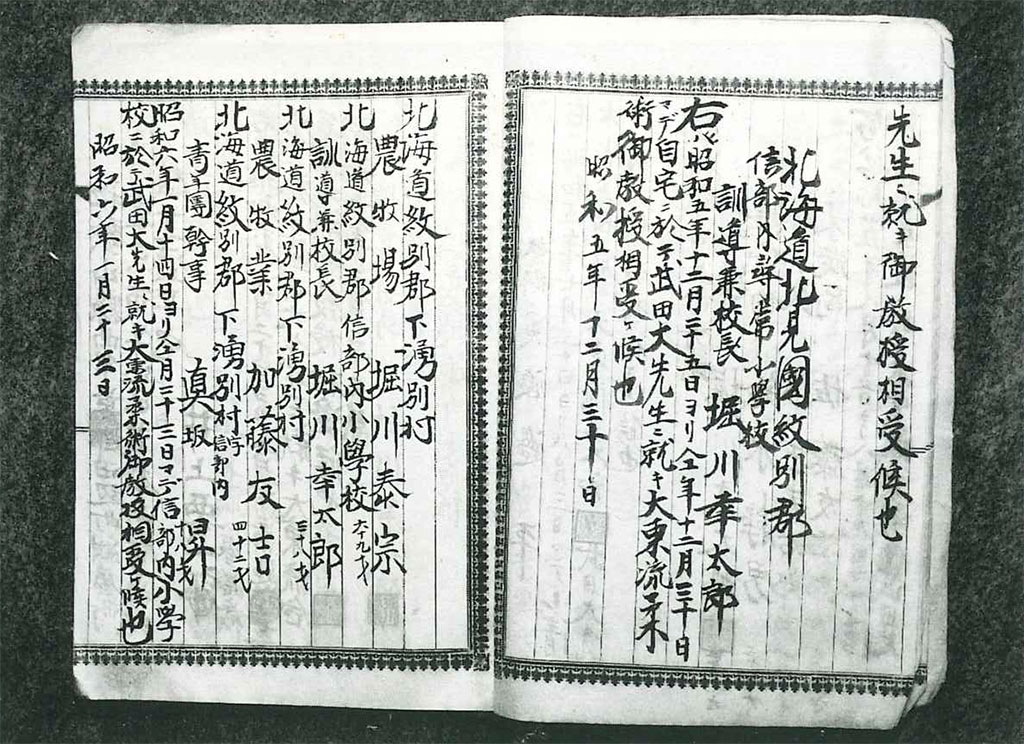 先生ニ就キ御教授相受候也
北海道北見國紋別郡
信部内尋常小學校
訓導兼校長 堀川幸太郎
右ハ昭和五年十二月二十五日ヨリ仝年十二月三十日
マデ自宅ニ於テ武田大先生ニ就キ大東流柔
術御教授相受ケ候也
昭和五年十二月三十日
北海道紋別郡下湧別村
農牧場 堀川泰宗
六十九才
北海道紋別郡信部内小學校
訓導兼校長 堀川幸太郎
三十八才
北海道紋別郡下湧別村
農牧業 加藤友吉
四十二才
北海道紋別郡下湧別村字信部内
青年團幹事 真坂昇
十八才
昭和六年一月十四日ヨリ仝月二十三日マデ信部内小學
校ニ於テ武田大先生ニ就キ大東流柔術御教授相受ケ候也
昭和六年一月二十三日